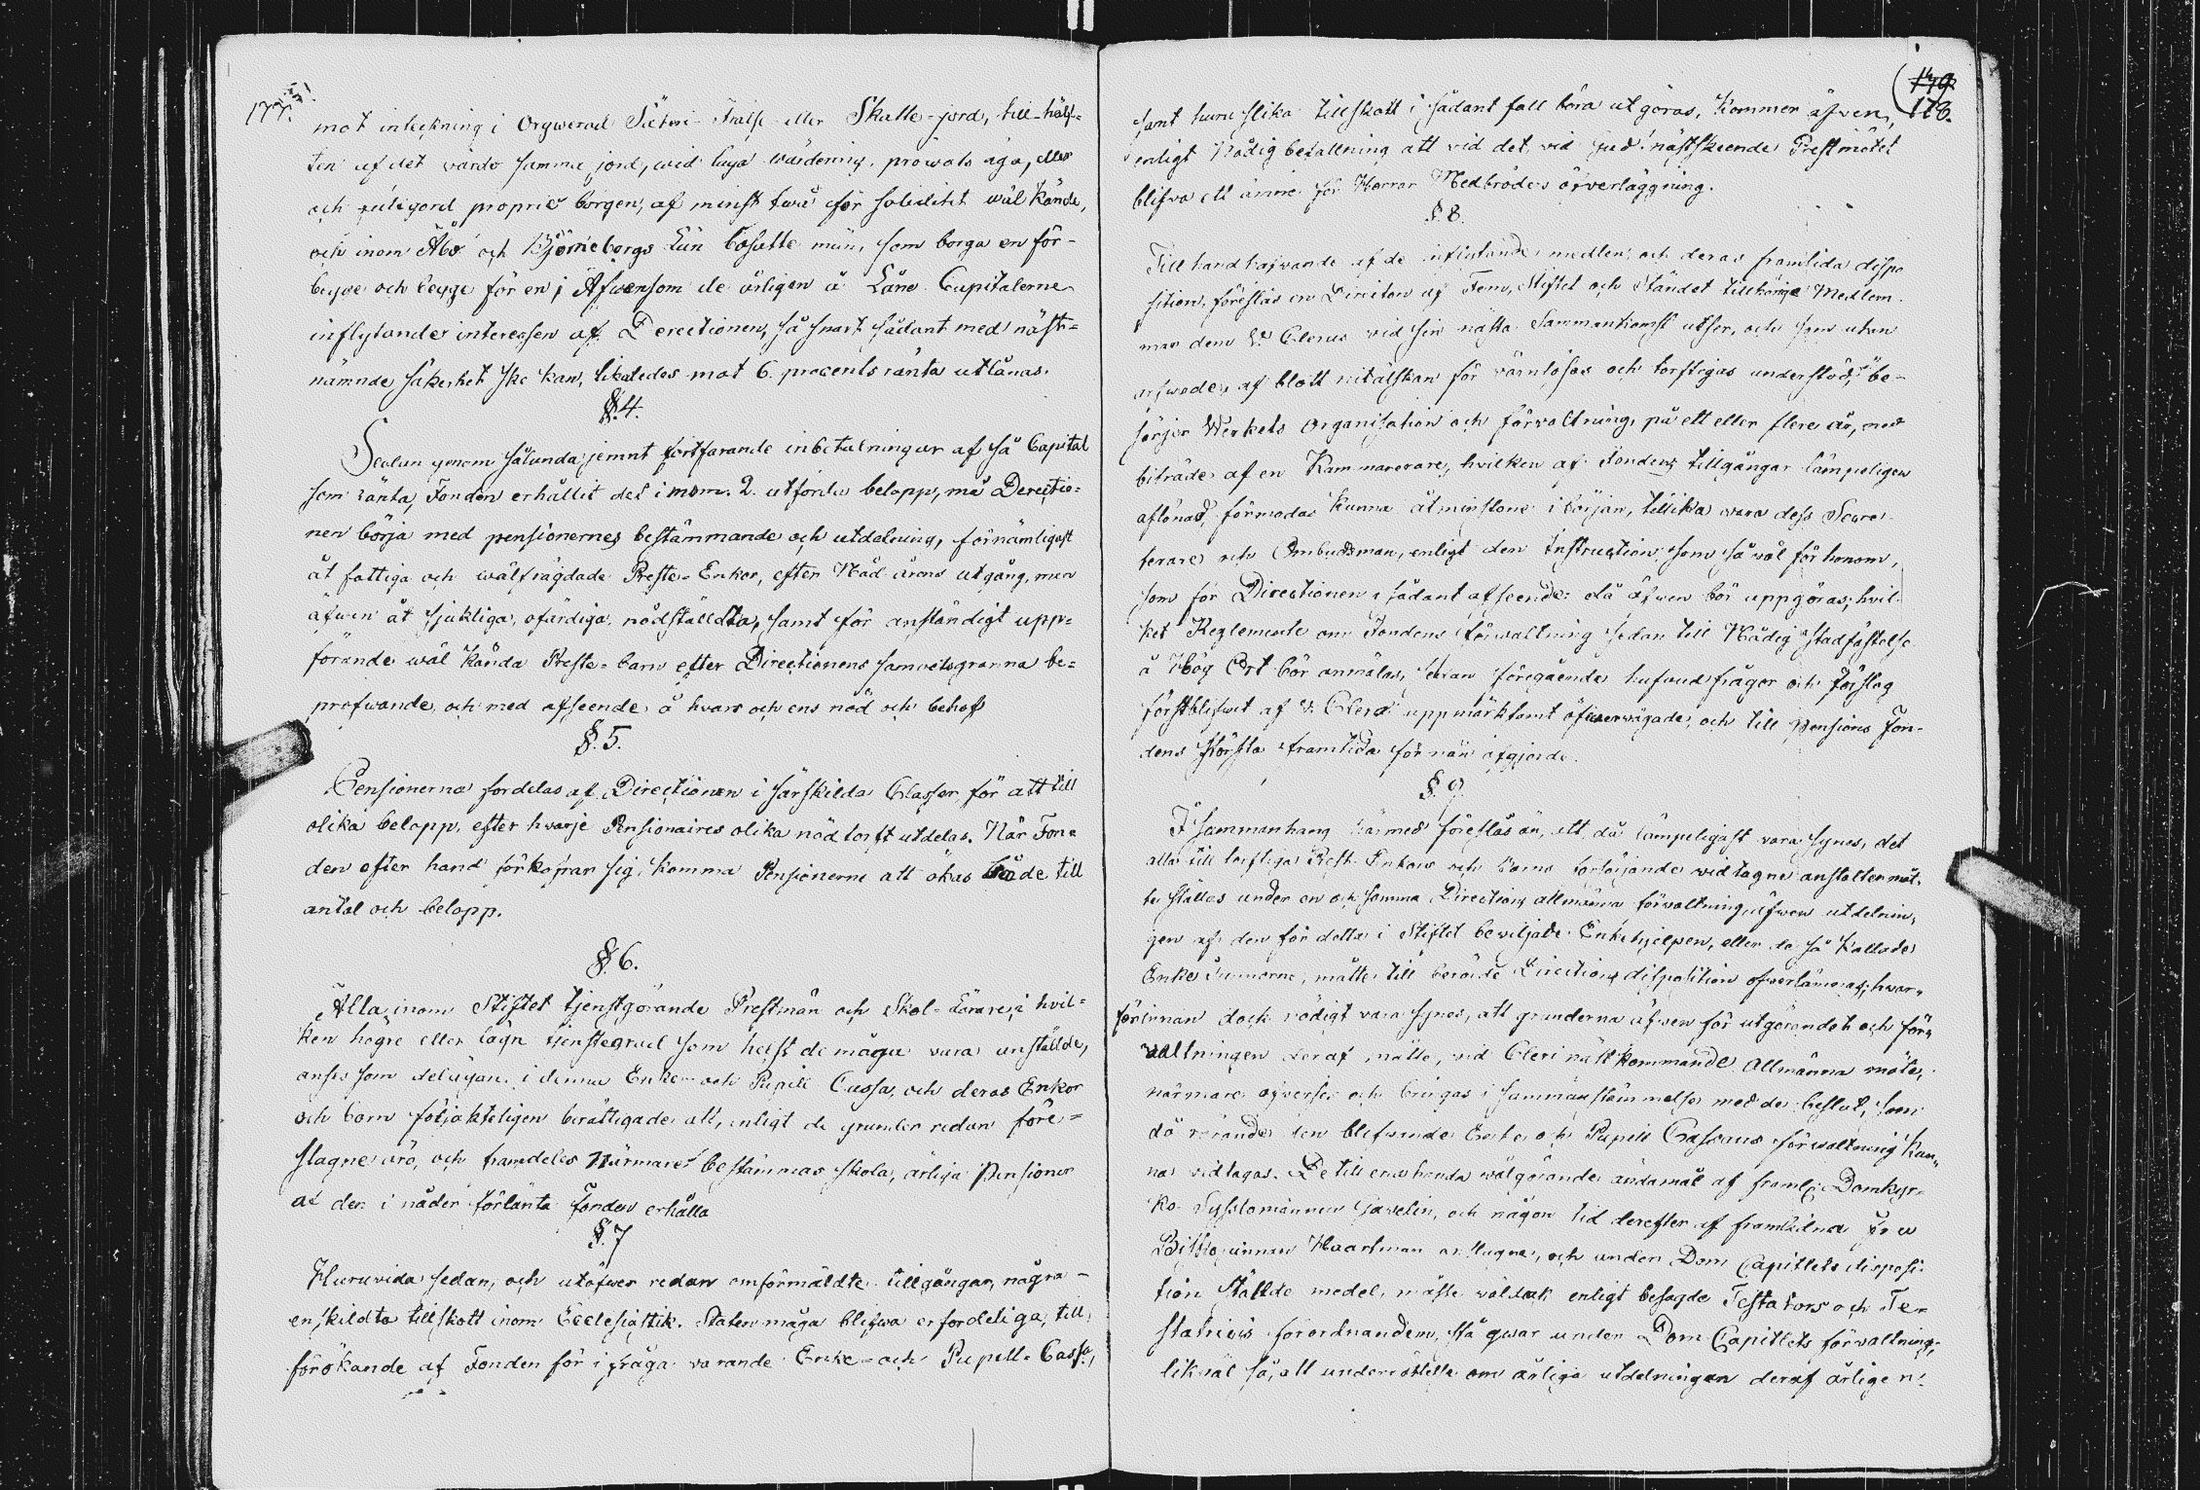 177.
mot inteckning i Orgwerad Säteri- Frälse- eller Skatte-jord, till hälf-
ten af det värde samma jord, wid laga wärdering, pröwats äga, eller
och proprie borgen, af minst twå för soliditet wäl kände,
och inom Åbo och Björneborgs Län bosatte män, som borga en för
begge och begge för en; Äfwensom de årligen å Låne Capitalerne
inflytande interessen af Derectionen, så snart sådant med näst-
nämnde säkerhet ske kan, likaledes mot 6 procents ränta utlånas.
§. 4.
Sedan genom sålunda jemnt fortfarande inbetalningar af så Capital
som ränta, Fonden erhållit det i mom. 2. utförda belopp, må Derectio=
nen börja med pensionernes bestämmande och utdelning, förnämligast
åt fattiga och wälfrägdade Preste-Enkor, efter Nåd-årens utgång, men
äfwen åt sjukliga, ofärdiga, nödställdta, samt för anständigt upp=
förande wäl kända Preste-barn efter Directionens samwetsgranna be=
pröfwande, och med afseende å hvars och ens nöd och behof
§. 5.
Pensionerna fördelas af Directionen i särskilda Classer, för att till
olika belopp, efter hwarje Pensionaires olika nödtorft utdelas. När Fon=
den efter hand förkofrar sig, komma Pensionerne att ökas både till
antal och belopp.
§. 6.
Alla inom Stiftet tjenstgörande Prestmän och Skol-Lärare, i hvil=
ken högre eller lägre tjenstegrad som helst de måga vara anställde,
anses som delägare i denna Enke- och Pupill Cassa, och deras Enkor
och barn följakteligen berättigade att, enligt de grunder redan före=
slagne äro, och framdeles närmare bestämmas skola, årliga Pensioner
af den i nåder förlänta Fonden erhålla
§. 7
Huruvida sedan, och utöfwer redan omförmäldte tillgångar, några
enskildta tillskott inom Ecclesiastik-Staten måga blifwa erforderliga, till
förökande af Fonden för i fråga varande Enke- och Pupill-Cassa,
178.
samt huru slika tillskott i sådant fall böra utgöras, kommer äfven,
enligt Nådig befallning att vid det, vid Gud! nästskeende Prestmötet
blifva ett ämne för Herrar Medbröders öfverläggning.
§. 8.
Till handhafwande af de inflytande medlen, och deras framtida dispo
sition, föreslås en Direction af Fem, Stiftet och Ståndet tillhörige Medlem
mar dem V. Clerus vid sin nästa Sammankomst utser, och som utan
arfwode, af blott nitälskan för värnlösas och torftigas understöd, be-
sörjer Werkets Organisation och förvaltning, på ett eller flere år, med
biträde af en Kammarerare, hvilken af Fondens tillgångar lämpeligen
aflönad, förmodas kunna åtminstone i början, tillika vara dess Secre-
terare och Ombudsman, enligt den Instruction som så väl för honom,
som för Directionen i sådant afseende då äfwen bör uppgöras; hvil-
ket Reglemente om Fondens förwaltning sedan till Nådig stadfästelse
å Hög Ort bör anmälas, sedan föregående hufwudfrågor och förslag
först blifwit af V. Clero uppmärksamt öfwervägade, och till Pensions Fon-
dens första framtida förmån afgjorde.
§. 9.
I sammanhang härmed föreslås än, att, då lämpeligast vara synes, det
alla till torftiga Prest-Enkors och Barns försörjande vidtagne anstalter måt-
te ställas under en och samma Directions allmänna förvaltning, äfwen utdelnin-
gen af den för detta i Stiftet beviljade Enkehjelpen, eller de så kallade
Enke Summorne, måtte till berörde Directions disposition öfverlämnas; hwar-
förinnan dock nödigt vara synes, att grunderna äfwen för utgörandet och för=
waltningen deraf måtte, vid Cleri nästkommande allmänna möte,
närmare öfverses och bringas i sammanstämmelse med de beslut, som
då rörande den blifwande Enke och Pupill Cassans förwaltning kun-
na vidtagas. De till enahanda wälgörande ändamål af framl. Domkyr-
ko-Sysslomannen Gavelin, och någon tid derefter af framlidna Fru
Biskopinnan Haartman anslagne, och under Dom Capitlets disposi-
tion ställde medel, måste väl dock enligt besagde Testators och Tes
statricis förordnanden, stå qwar under Dom Capitlets förvaltning,
likväl så, att underrättelse om årliga utdelningen deraf årligen